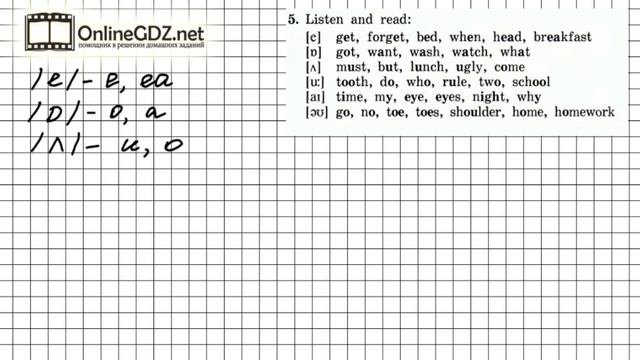 OnlineGDZ.net
помощник в решении домашних заданий
/e/ - e, ea
/ɒ/ - o, a
/ʌ/ - u, o
5. Listen and read:
[e] get, forget, bed, when, head, breakfast
[ɒ] got, want, wash, watch, what
[ʌ] must, but, lunch, ugly, come
[u:] tooth, do, who, rule, two, school
[aɪ] time, my, eye, eyes, night, why
[əʊ] go, no, toe, toes, shoulder, home, homework